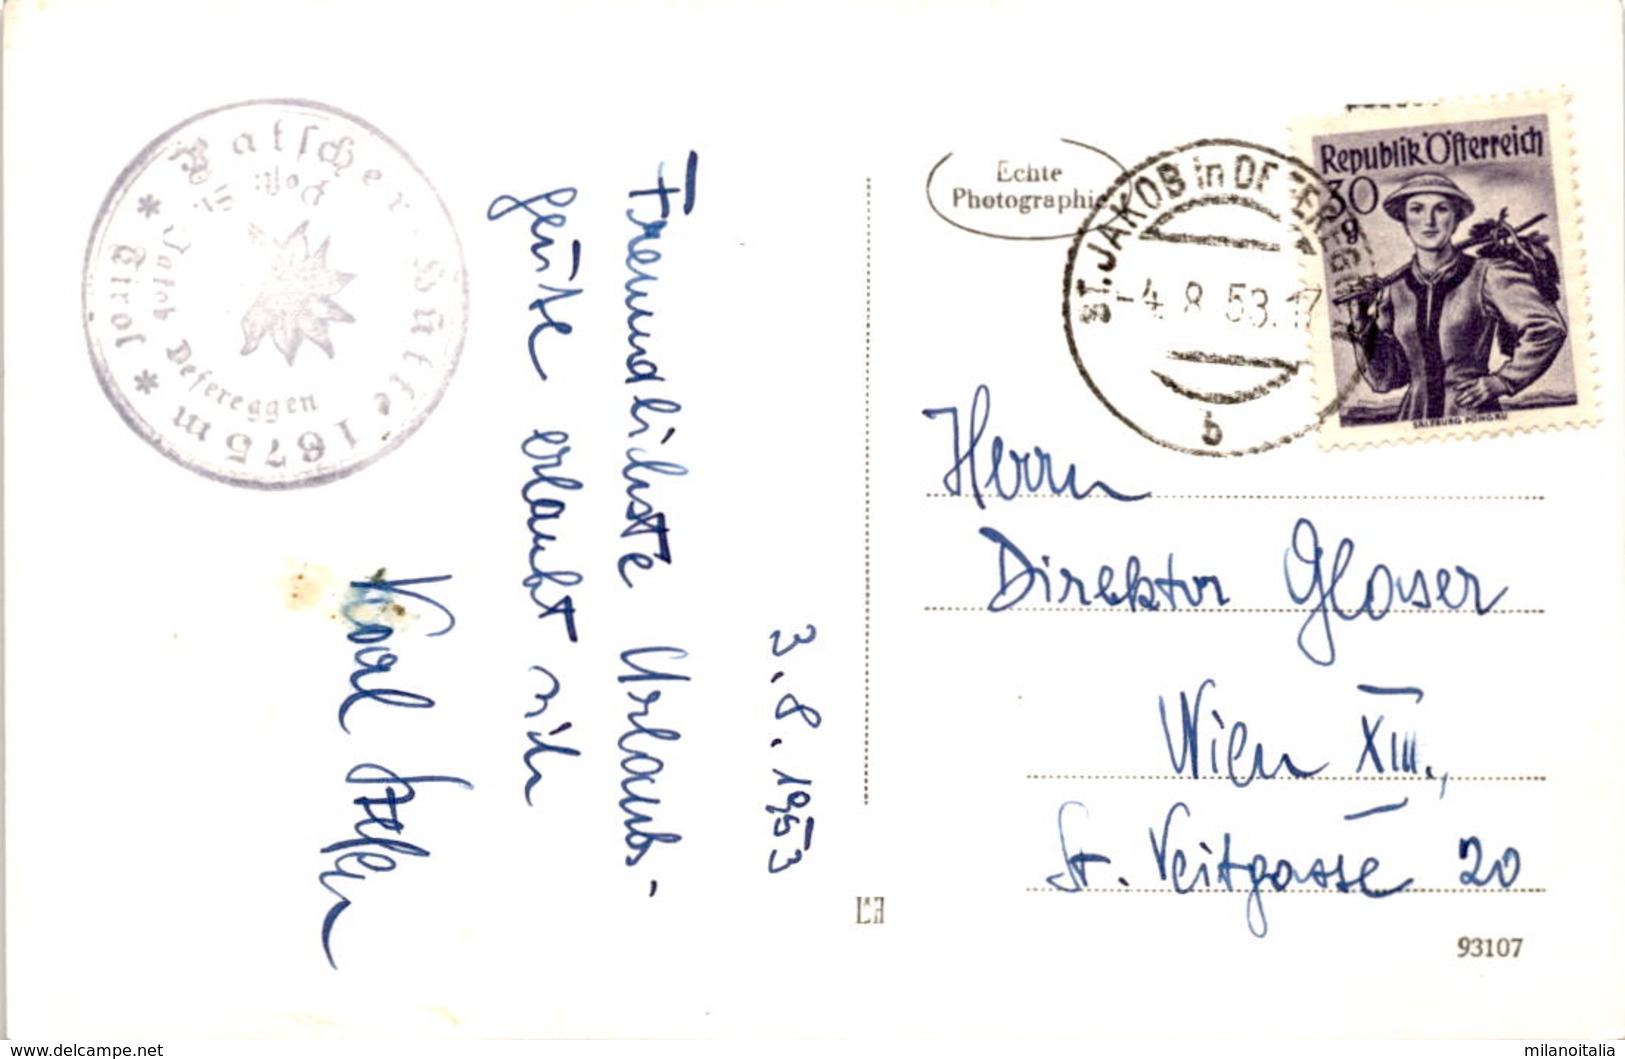 Patscher-Hütte 1675 m
* Tirol *
Post
St. Jakob Defereggen
3.8.1953
Freundlichste Urlaubs-
grüße erlaubt sich
Karl
Echte
Photographie
ST. JAKOB in DEFEREGGEN
-4.8.53.17
b
Republik Österreich
30 g
SALZBURG PONGAU
Herrn
Direktor Glaser
Wien XIII.,
St. Veitgasse 20
93107
delcampe.net
milanoitalia